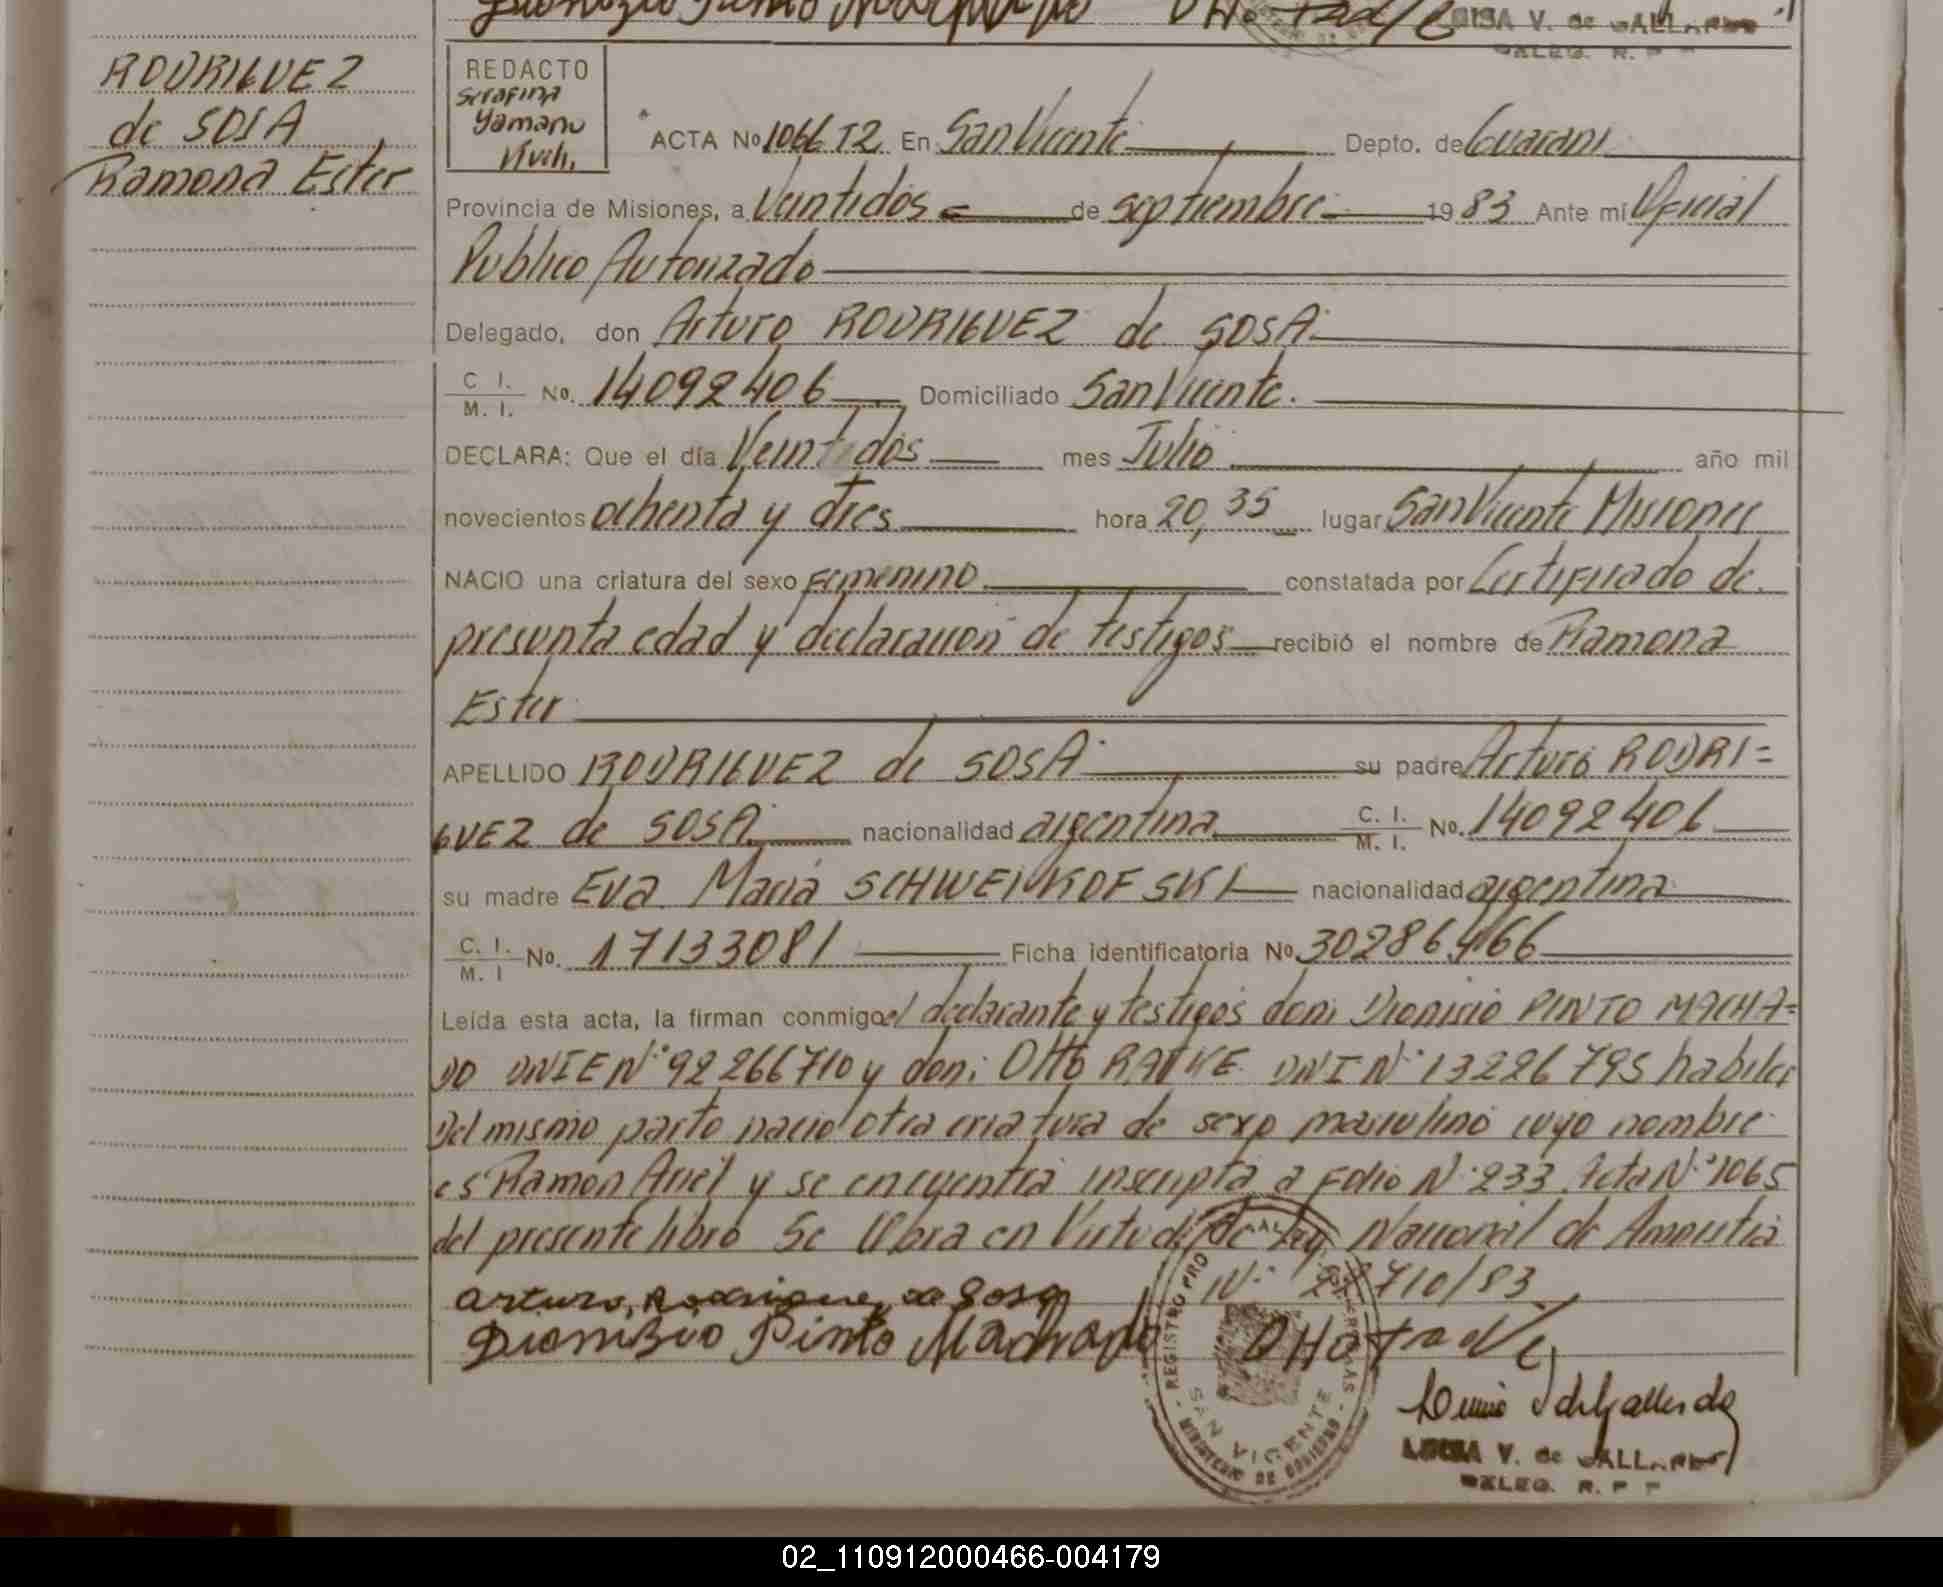 Pinto
LUISA V. de GALLARDO
DELEG. R. P P
RODRIGUEZ
de SOSA
Ramona Ester
REDACTO
Serafina
Yamanu
ACTA No 1066 T2 En San Vicente Depto. de Guarani
Provincia de Misiones, a Veintidos de septiembre 1983 Ante mi Oficial
Publico Autorizado
Delegado, don Arturo RODRIGUEZ de SOSA
C I. / M. I. No. 14092406 Domiciliado San Vicente.
DECLARA: Que el día Veintidos mes Julio año mil
novecientos ochenta y tres hora 20,35 lugar San Vicente Misiones
NACIO una criatura del sexo Femenino constatada por Certificado de
presunta edad y declaracion de testigos recibió el nombre de Ramona
Ester
APELLIDO RODRIGUEZ de SOSA su padre Arturo RODRI=
GUEZ de SOSA nacionalidad argentina C. I. / M. I. No. 14092406
su madre Eva Maria SCHWEIKOFSKI nacionalidad argentina
C. I. / M. I No. 17133081 Ficha identificatoria No. 30286466
Leída esta acta, la firman conmigo el declarante y testigos don: Dionisio PINTO MACHA=
DO DNIE N° 92266710 y don: Otto RATKE DNI N° 13226795 habiles
Del mismo parto nacio otra criatura de sexo masculino cuyo nombre
es Ramon Ariel y se encuentra inscripta a Folio N° 233 Acta N° 1065
del presente libro Se labra en Virtud de Ley Nacional de Amnistia
N° 22710/83
arturo, Rodriguez de Sosa
Dionisio Pinto Machado
REGISTRO PRO
SAN VICENTE
MINISTERIO DE GOBIERNO
LUISA V. de GALLARDO
DELEG. R. P P
02_110912000466-004179